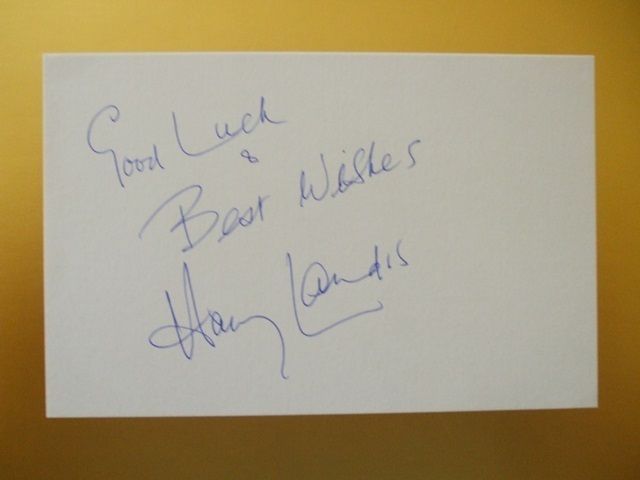 Good Luck
&
Best Wishes
Harry Landis